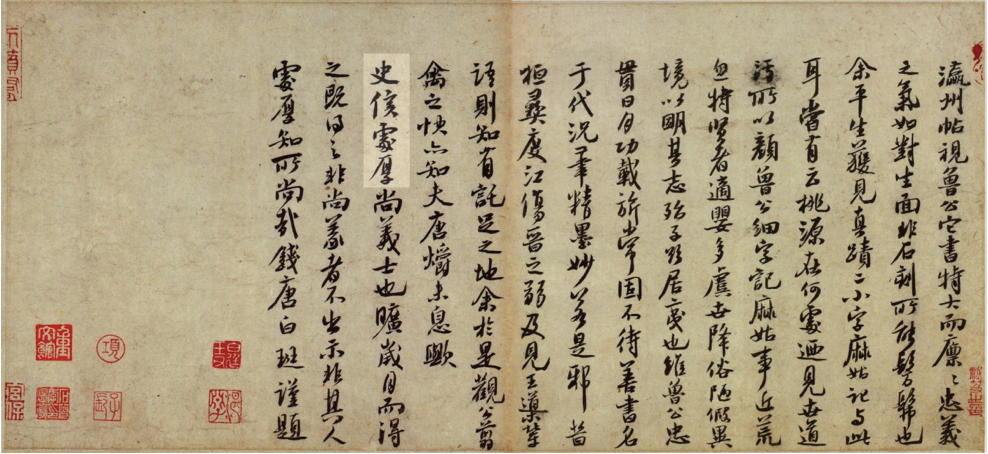 瀛州帖視魯公它書特大而凛凛忠義
之氣如對生面非石刻所能髣髴也
余平生獲見真蹟二小字麻姑記与此
耳嘗有云桃源在何處迺見世道
污所以顔魯公細字記麻姑事近荒
忽特賢者適嬰多虞世降俗陋假異
境以明其志殆子欲居夷也雖魯公忠
貫日月功載旂常固不待善書名
于代況筆精墨妙若是邪昔
桓彞度江傷晉之弱及見王導
語則知有託足之地余於是觀公翦
禽之快亦知夫唐爝未息歟
史侯處厚尚義士也曠歲月而得
之既得之非尚義者不出示非其人
處厚知所尚哉錢唐白珽謹題
項
子京
宮保